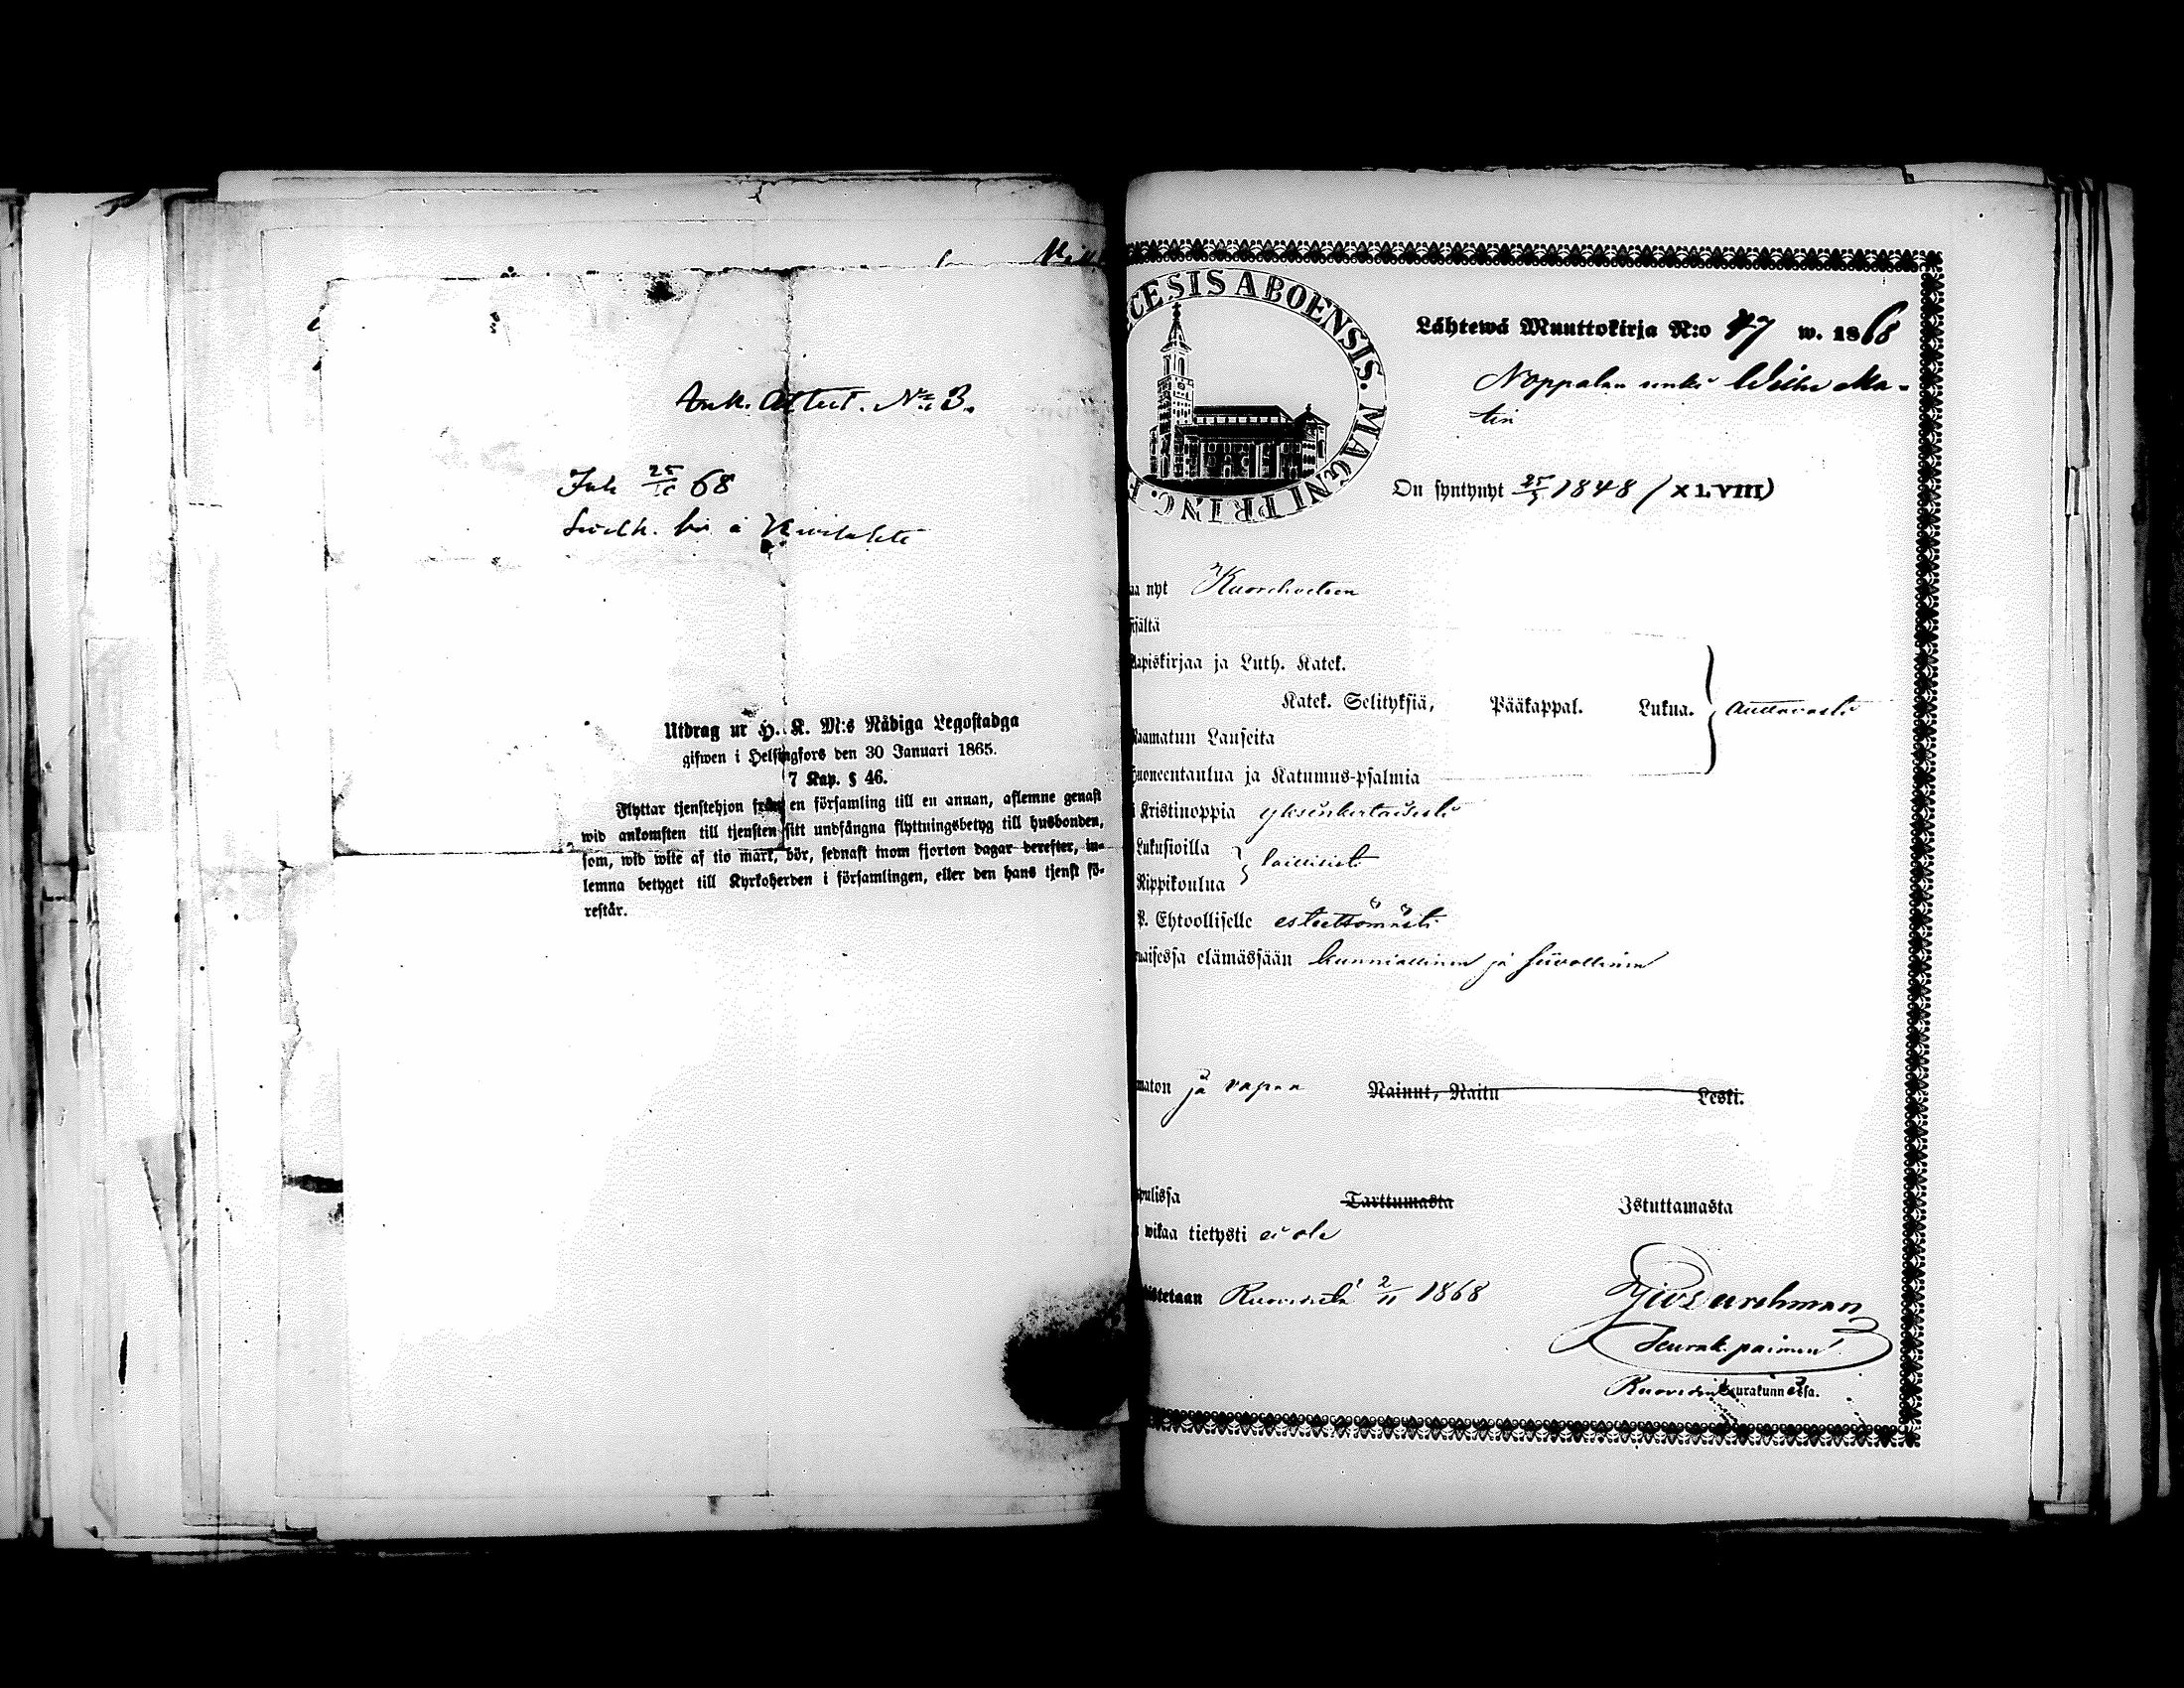 Ank. Attest. No 3.
Ink 25/11 68
bör å
Utdrag ur H. K. M:s Nådiga Legostadga
gifwen i Helsingfors den 30 Januari 1865.
7 Kap. § 46.
Flyttar tjenstehjon från en församling till en annan, aflemne genast
wid ankomsten till tjensten sitt undfångna flyttningsbetyg till husbonden,
som, wid wite af tio mark, bör, sednast inom fjorton dagar derefter, in-
lemna betyget till Kyrkoherden i församlingen, eller den hans tjenst fö-
restår.
CESIS ABOENSIS. MAGNI PRINC. F
Lähtewä Muuttokirja N:o 47 w. 1868
Noppalan renki Wilho Ma-
tin
On syntynyt 25/5 1848 (XLVIII)
aa nyt Kuorehveteen
jältä
Aapiskirjaa ja Luth. Katek.
Katek. Selityksiä, Pääkappal. Lukua. auttavasti
Raamatun Lauseita
Huoneentaulua ja Katumus-psalmia
Kristinoppia yksinkertaisesti
Lukusioilla
laillisesti
Rippikoulua
P. Ehtoolliselle esteettömästi
naisessa elämässään kunniallinen ja siivollinen
maton ja vapaa Nainut, Naitu Leski.
pulissa Tarttumasta Istuttamasta
wikaa tietysti ei ole
distetaan Ruovedellä 2/11 1868
Durchman
Seurak. paimen
Ruoveden Seurakunnassa.